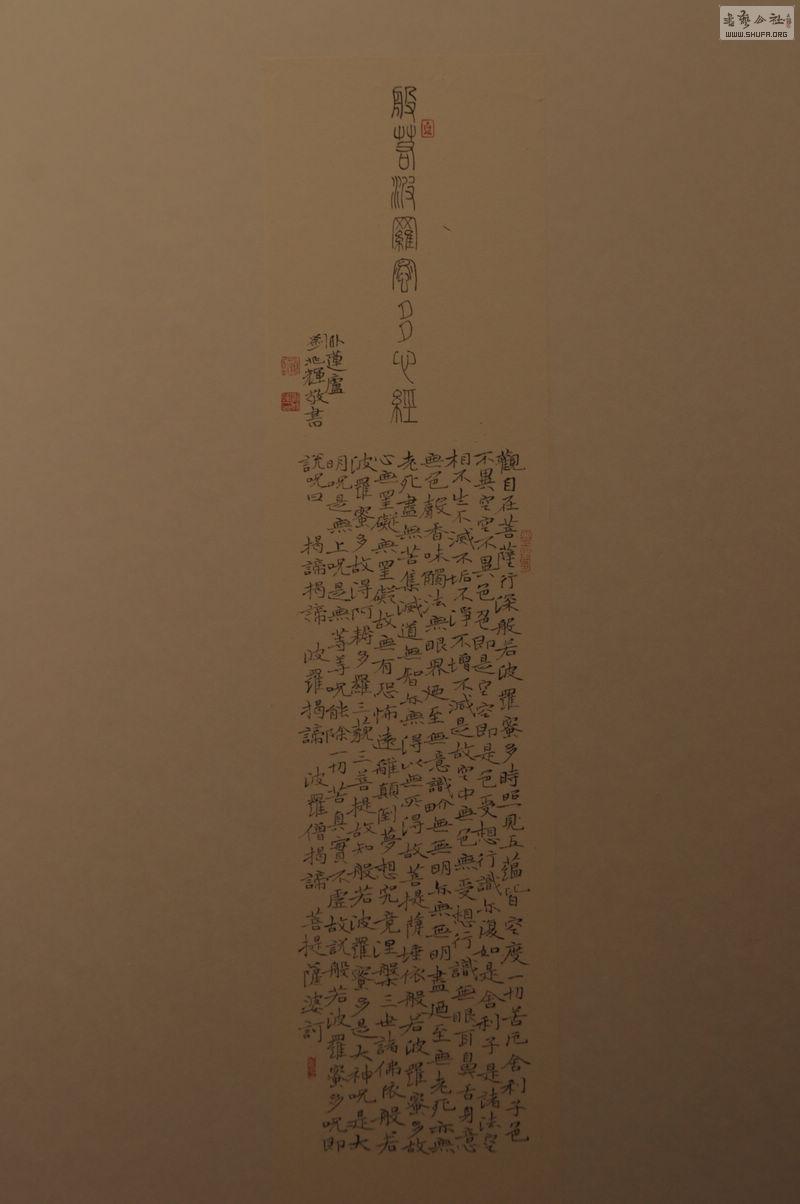 般若波羅蜜多心經
觀自在菩薩行深般若波羅蜜多時照見五蘊皆空度一切苦厄舍利子色
不異空空不異色色即是空空即是色受想行識亦復如是舍利子是諸法空
相不生不滅不垢不淨不增不減是故空中無色無受想行識無眼耳鼻舌身意
無色聲香味觸法無眼界廼至無意識界無無明亦無無明盡廼至無老死亦無
老死盡無苦集滅道無智亦無得以無所得故菩提薩埵依般若波羅蜜多故
心無罣礙無罣礙故無有恐怖遠離顛倒夢想究竟涅槃三世諸佛依般若
波羅蜜多故得阿耨多羅三藐三菩提故知般若波羅蜜多是大神呪是大
明呪是無上呪是無等等呪能除一切苦真實不虛故說般若波羅蜜多呪即
說呪曰 揭諦揭諦 波羅揭諦 波羅僧揭諦 菩提薩婆訶
卧蓮廬
劉旭輝敬書
書藝公社
WWW.SHUFA.ORG